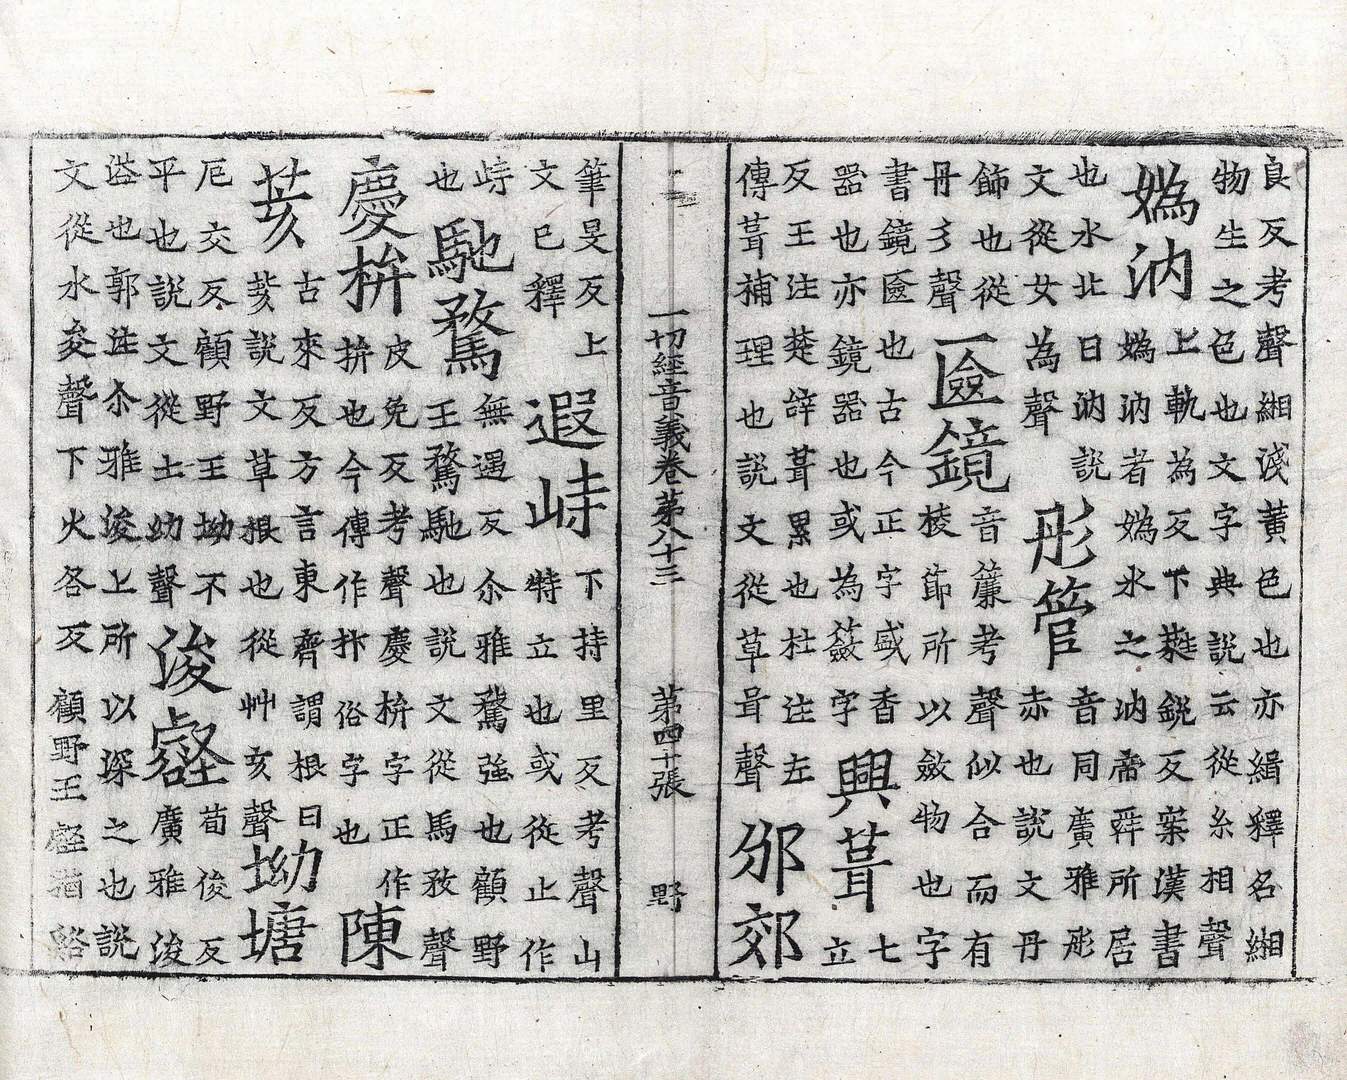 良反考聲緗淺黃色也亦緝釋名緗
物生之色也文字典說云從糸相聲
媯汭
上軌為反下蕤銳反案漢書
媯汭者媯水之汭帝舜所居
也水北曰汭說
文從女為聲
彤管
音同廣雅彤
赤也說文丹
飾也從
丹彡聲
匳鏡
音簾考聲似合而有
稜節所以斂物也字
書鏡匳也古今正字盛香
器也亦鏡器也或為籢字
興葺
七
立
反王注楚辭葺累也杜注左
傳葺補理也說文從草咠聲
邠郊
一切經音義卷第八十三 第四十張 野
筆旻反上
文已釋
遐峙
下持里反考聲山
特立也或從止作
峙
也
馳騖
無遇反尒雅騖強也顧野
王騖馳也說文從馬敄聲
慶拚
皮免反考聲慶拚字正作
拚也今傳作抃俗字也
陳
荄
古來反方言東齊謂根曰
荄說文草根也從艸亥聲
坳塘
厄交反顧野王坳不
平也說文從土幼聲
浚壑
荀俊反
廣雅浚
溢也郭注尒雅浚上所以深之也說
文從水夋聲下火各反顧野王壑猶谿